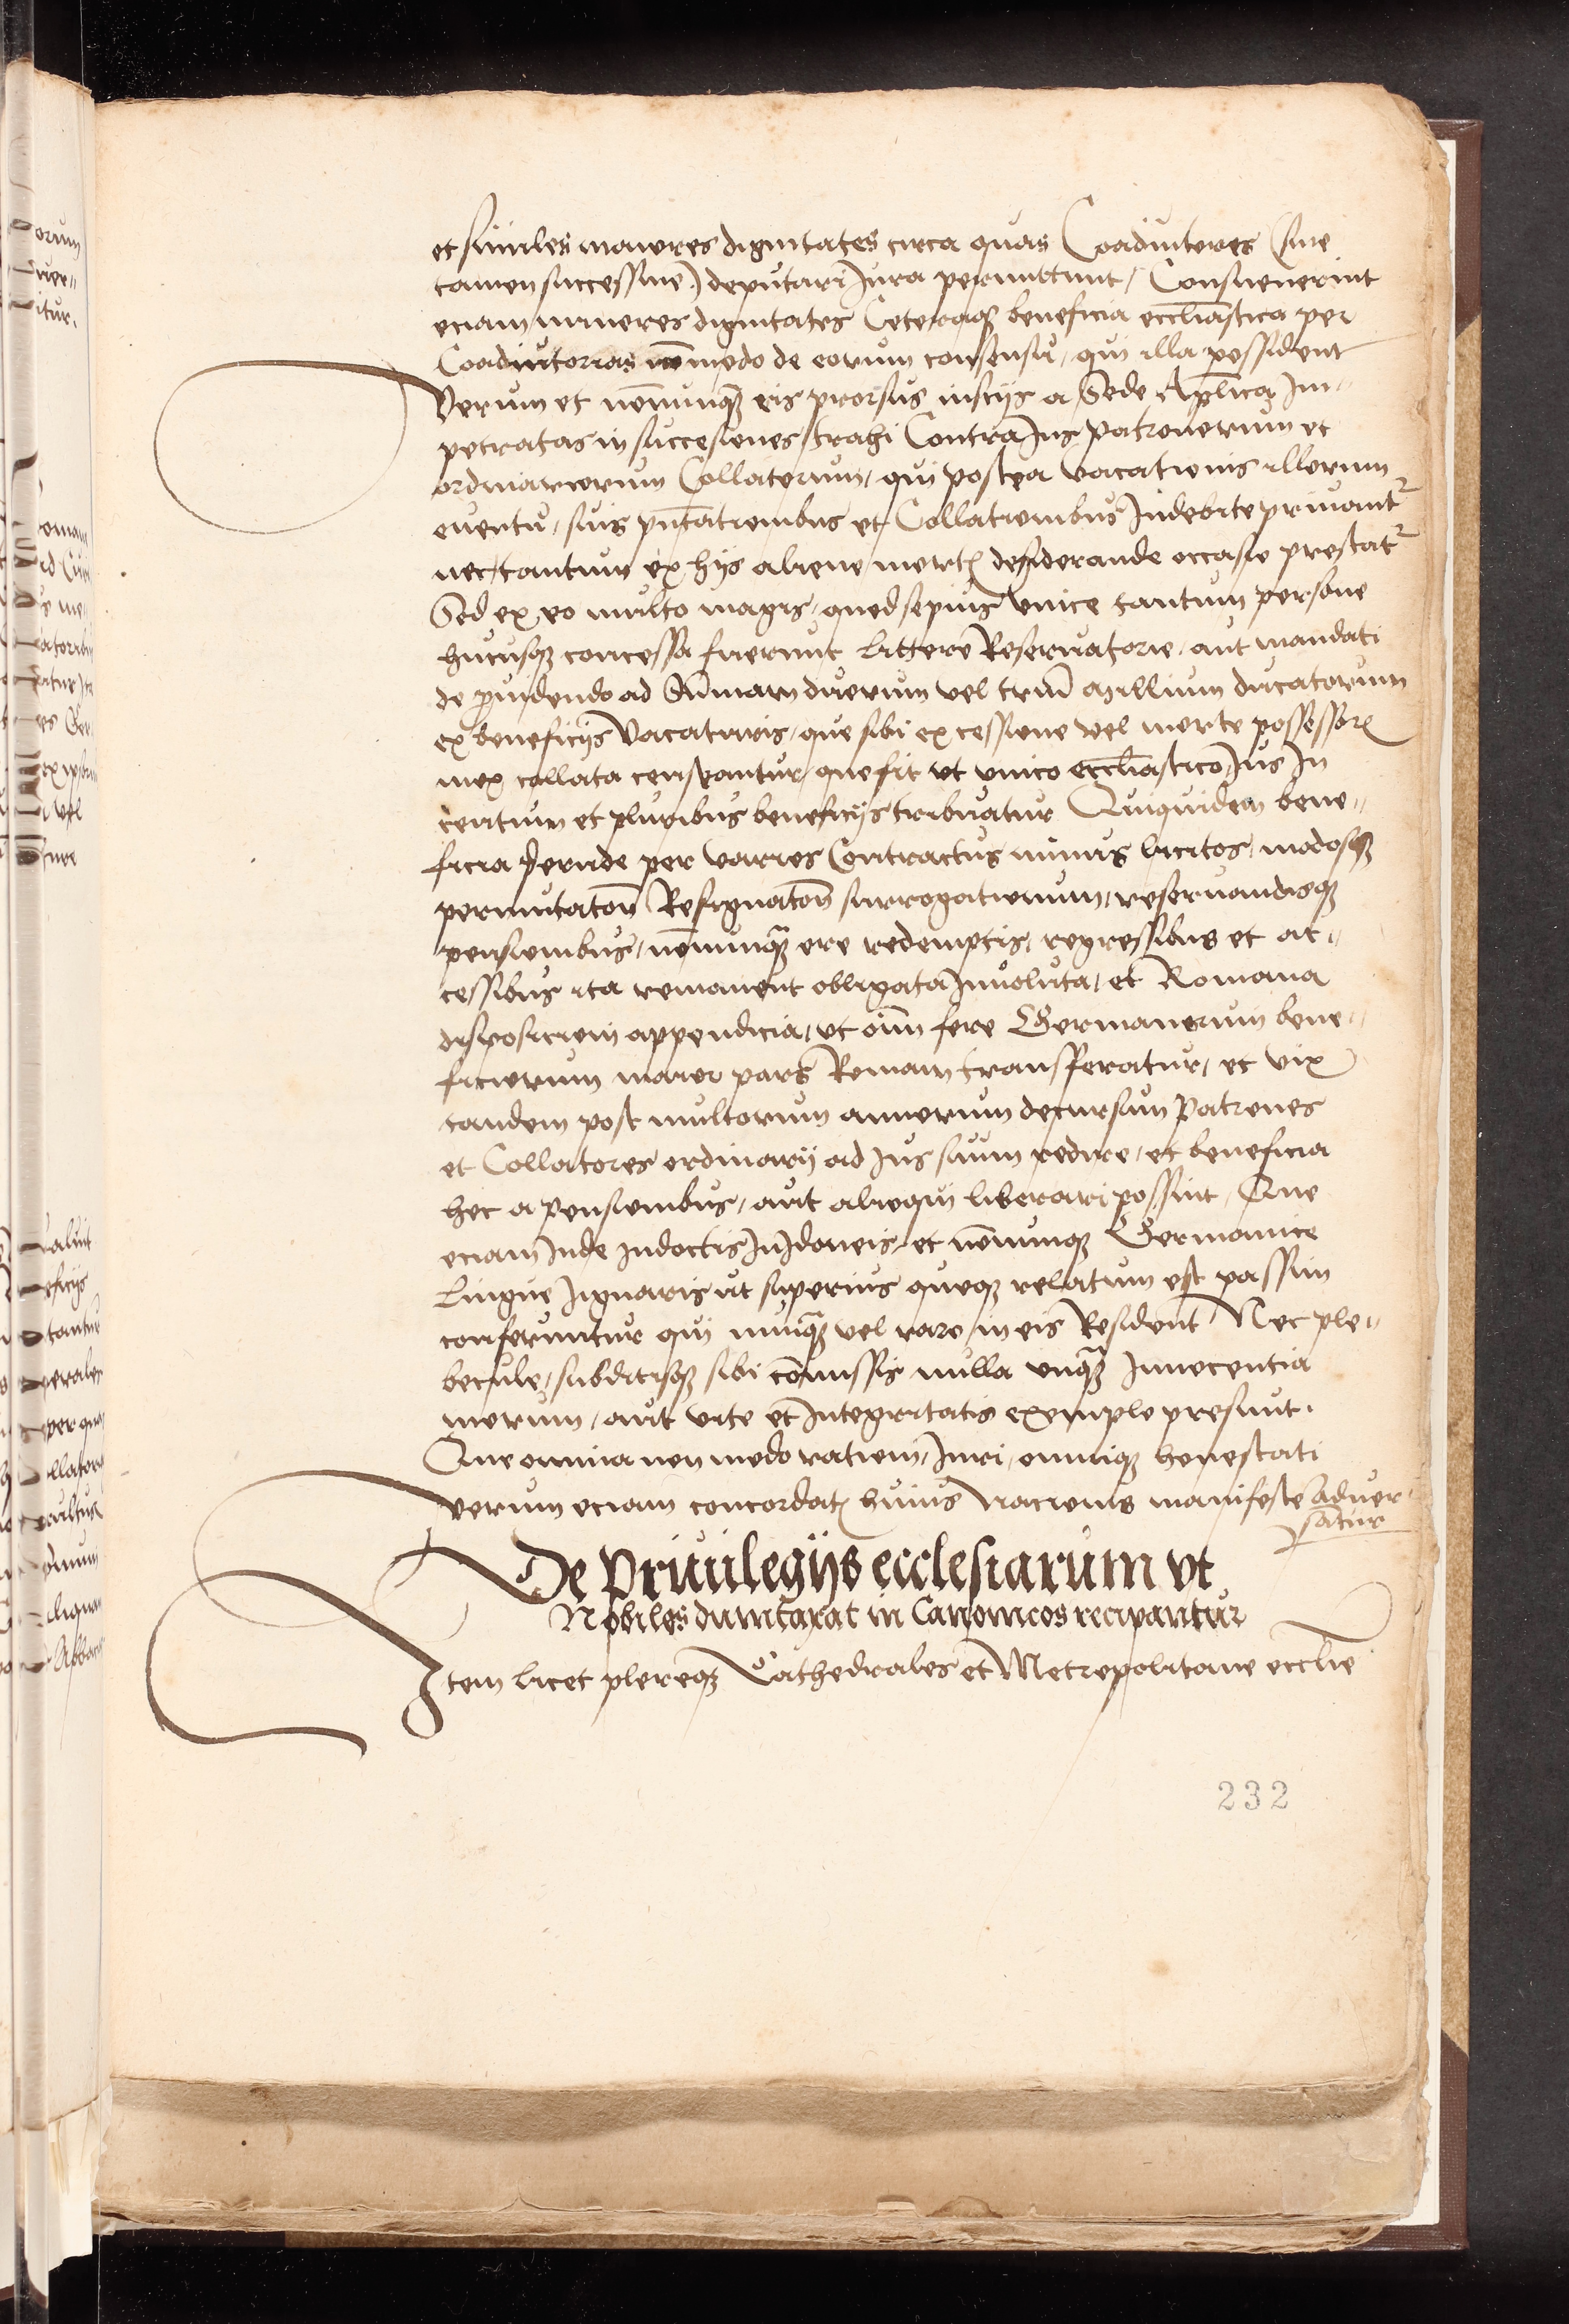 et similes maiores dignitates circa quas Coadiutores (sine
tamen successione) deputari Jura permittunt / Consueuerint
eciam minores dignitates Ceteraq₃ beneficia eccliastica per
Coadiutorias nōmodo de eorum consensu / qui illa possident
Verum et nōnunq₃ eis prorsus insciis a Sede Aplica Im-
petratas in successiones trahi Contra Ius patronorum et
ordinariorum Collatorum / qui postea vacationis illorum
euentu / suis pntationibus et Collationibus Indebite priuantr
nec tantum ex hijs aliene mortis desiderande occasio prestatr
Sed ex eo multo magis / quod sepius vnice tantum persone
hucusq₃ concessa fuerunt littere Reseruatorie / aut mandati
de prouidendo ad Summam duorum vel trium Millium ducatorum
ex beneficijs Vacaturis / que sibi ex cessione vel morte possessoris
mox collata censeantur / quo fit vt vnico eccliastico Ius In
centum et pluribus beneficijs tribuatur Quiquidem bene-
ficia perinde per varios Contractus minus licitos / modosq₃
permutaton Resignaton surrogationum / reseruandisq₃
pensionibus / nōnunq₃ ere redemptis / regressibus et ac-
cessibus ita remanent obligata Inuoluta / et Romana
disposicioni appendicia / vt oim fere Germanorum bene-
ficiorum maior pars Romam transfferatur / et vix
tandem post multorum annorum decursum Patronos
et Collatores ordinarij ad Jus suum redire / et beneficia
hec a pensionibus / aut alioqui liberari possint / Que
eciam Inde Indoctis InIdoneis / et nōnunq₃ Germanice
Lingue Ignaris vt superius quoq₃ relatum est passim
conferuntur qui nunq₃ vel raro in eis Resident Nec ple-
becule / subditisq₃ sibi cōmissis nulla vnq₃ Innocentia
morum / aut vite et Integritatis exemplo presunt.
Que omnia non modo rationi / Iuri / omniq₃ honestati
verum eciam concordatis huius nacionis manifeste aduer-
satur
De Priuilegijs ecclesiarum vt
Nobiles dumtaxat in Canonicos recipiantur
Item licet pleręq₃ Cathedrales et Metropolitane ecclie
232